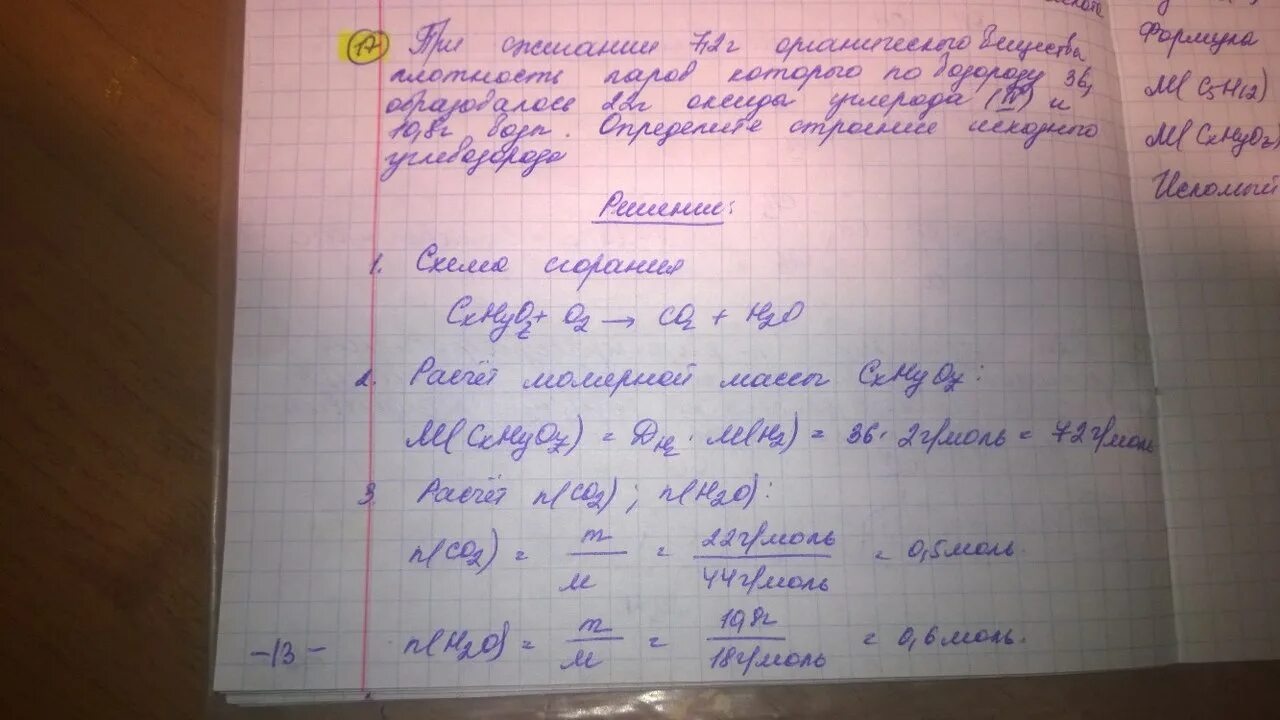 17 При сжигании 7,2г органического вещества
плотность паров которого по водороду 36,
образовалось 22г оксида углерода (IV) и
10,8г воды. Определите строение исходного
углеводорода
Решение:
1. Схема сгорания
CxHyOz + O2 → CO2 + H2O
2. Расчёт молярной массы CxHyOz:
M(CxHyOz) = DH2 · M(H2) = 36 · 2г/моль = 72г/моль
3. Расчёт n(CO2); n(H2O):
n(CO2) = m/M = 22г/моль / 44г/моль = 0,5моль.
n(H2O) = m/M = 10,8г / 18г/моль = 0,6моль.
-13-
Формула
M(C5H12)
M(CxHyOz)
Искомый